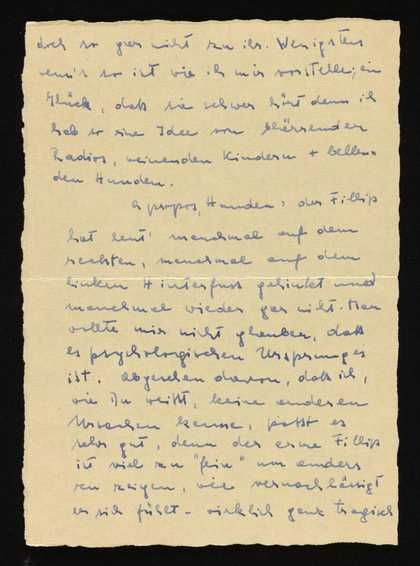 doch so gar nicht zu ihr. Wenigstens
wenn's so ist wie ich mir vorstelle; ein
Glück, daß sie schwer hört denn ich
hab so eine Idee von plärrenden
Radios, weinenden Kindern + bellen-
den Hunden.
Apropos, Hunden: der Fillip
hat heut' manchmal auf dem
rechten, manchmal auf dem
linken Hinterfuss gehinkt und
manchmal wieder gar nicht. Man
wollte mir nicht glauben, daß
es psychologischen Ursprunges
ist. Abgesehen davon, daß ich,
wie Du weißt, keine anderen
Ursachen kenne, paßt es
sehr gut, denn der arme Fillip
ist viel zu "fein" um anders
zu zeigen, wie vernachlässigt
er sich fühlt - wirklich ganz tragisch